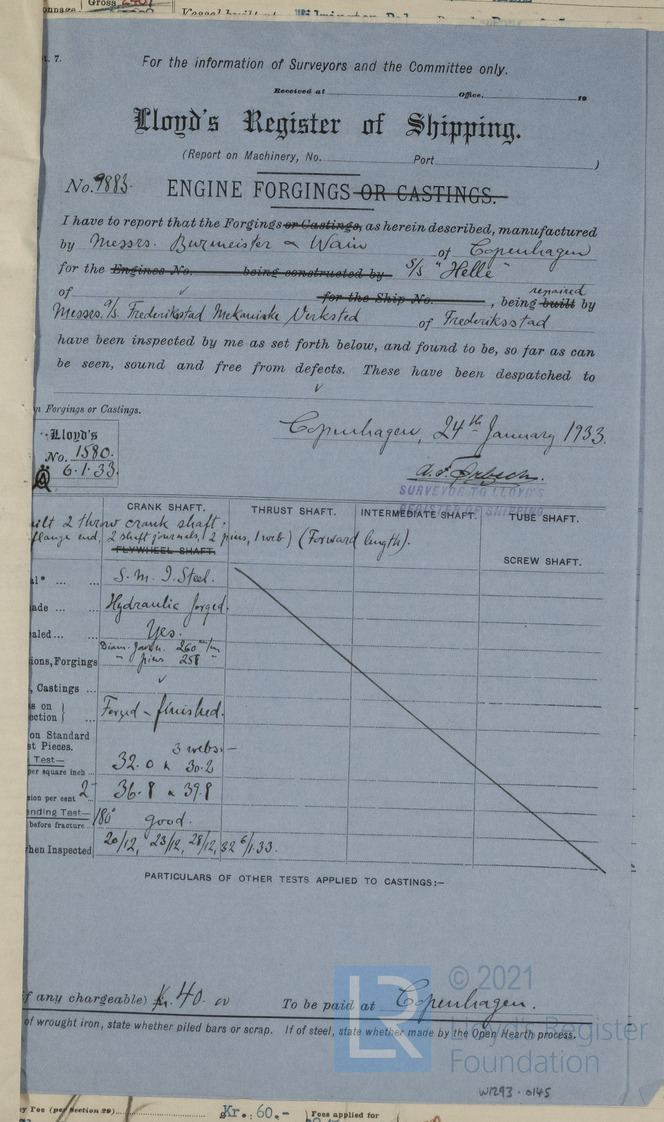 onnage Gross 2407
Vessel built at Wilmington
t. 7.
For the information of Surveyors and the Committee only.
Received at Office, 19
Lloyd's Register of Shipping.
(Report on Machinery, No. Port )
No. 9883. ENGINE FORGINGS OR CASTINGS.
I have to report that the Forgings or Castings, as herein described, manufactured
by Messrs. Burmeister & Wain of Copenhagen
for the Engines No. being constructed by S/S "Helle"
repaired
of ✓ for the Ship No. , being built by
Messrs. A/S. Frederiksstad Mekaniske Verksted of Frederiksstad
have been inspected by me as set forth below, and found to be, so far as can
be seen, sound and free from defects. These have been despatched to
✓
n Forgings or Castings.
Lloyd's
No. 1580.
6.1.33.
Copenhagen, 24th January 1933.
SURVEYOR TO LLOYD'S
REGISTER OF SHIPPING
CRANK SHAFT. THRUST SHAFT. INTERMEDIATE SHAFT. TUBE SHAFT.
uilt 2 throw crank shaft.
flange end, 2 shaft journals, 2 pins, 1 web) (Forward length).
FLYWHEEL SHAFT.
SCREW SHAFT.
al* ... ... S. M. I. Steel.
ade ... ... Hydraulic forged.
aled ... ... Yes.
Diam. Journ. 260 m/m
ions, Forgings " pins 258 "
, Castings ... ✓
s on }
ection } ... Forged & finished.
on Standard
st Pieces.
3 webs.—
Test—
32.0 & 30.2
per square inch ...
sion per cent 2" 36.8 & 39.8
ending Test—
before fracture ... 180° good.
hen Inspected 20/12, 23/12, 28/12, 32 6/1.33.
PARTICULARS OF OTHER TESTS APPLIED TO CASTINGS:—
if any chargeable) Kr. 40. 00 To be paid at Copenhagen.
of wrought iron, state whether piled bars or scrap. If of steel, state whether made by the Open Hearth process.
LR
© 2021
Lloyd's Register
Foundation
W1293-0145
ey Fee (per Section 29) Kr. 60.- Fees applied for